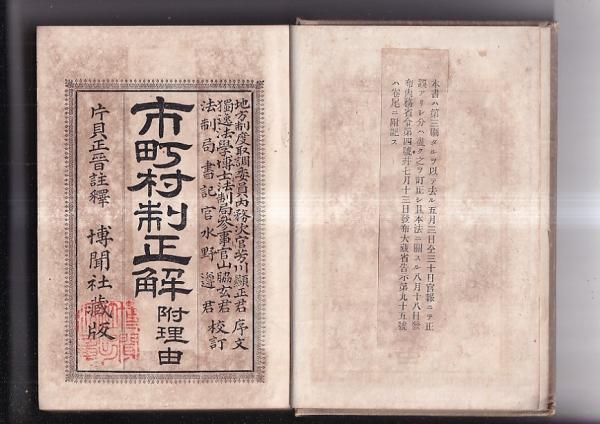 本書ハ第三版タルヲ以テ去ル五月三日仝三十日官報ニテ正
誤アリシ分ハ盡ク之ヲ訂正シ且本法ニ關スル八月十八日發
布内務省令第四號并七月十三日發布大藏省告示第九十五號
ハ卷尾ニ附記ス
地方制度取調委員内務次官芳川顯正君 序文
獨逸法學博士法制局參事官山脇玄君
法制局書記官水野遵君 校訂
市町村制正解 附理由
片貝正晉註釋 博聞社藏版